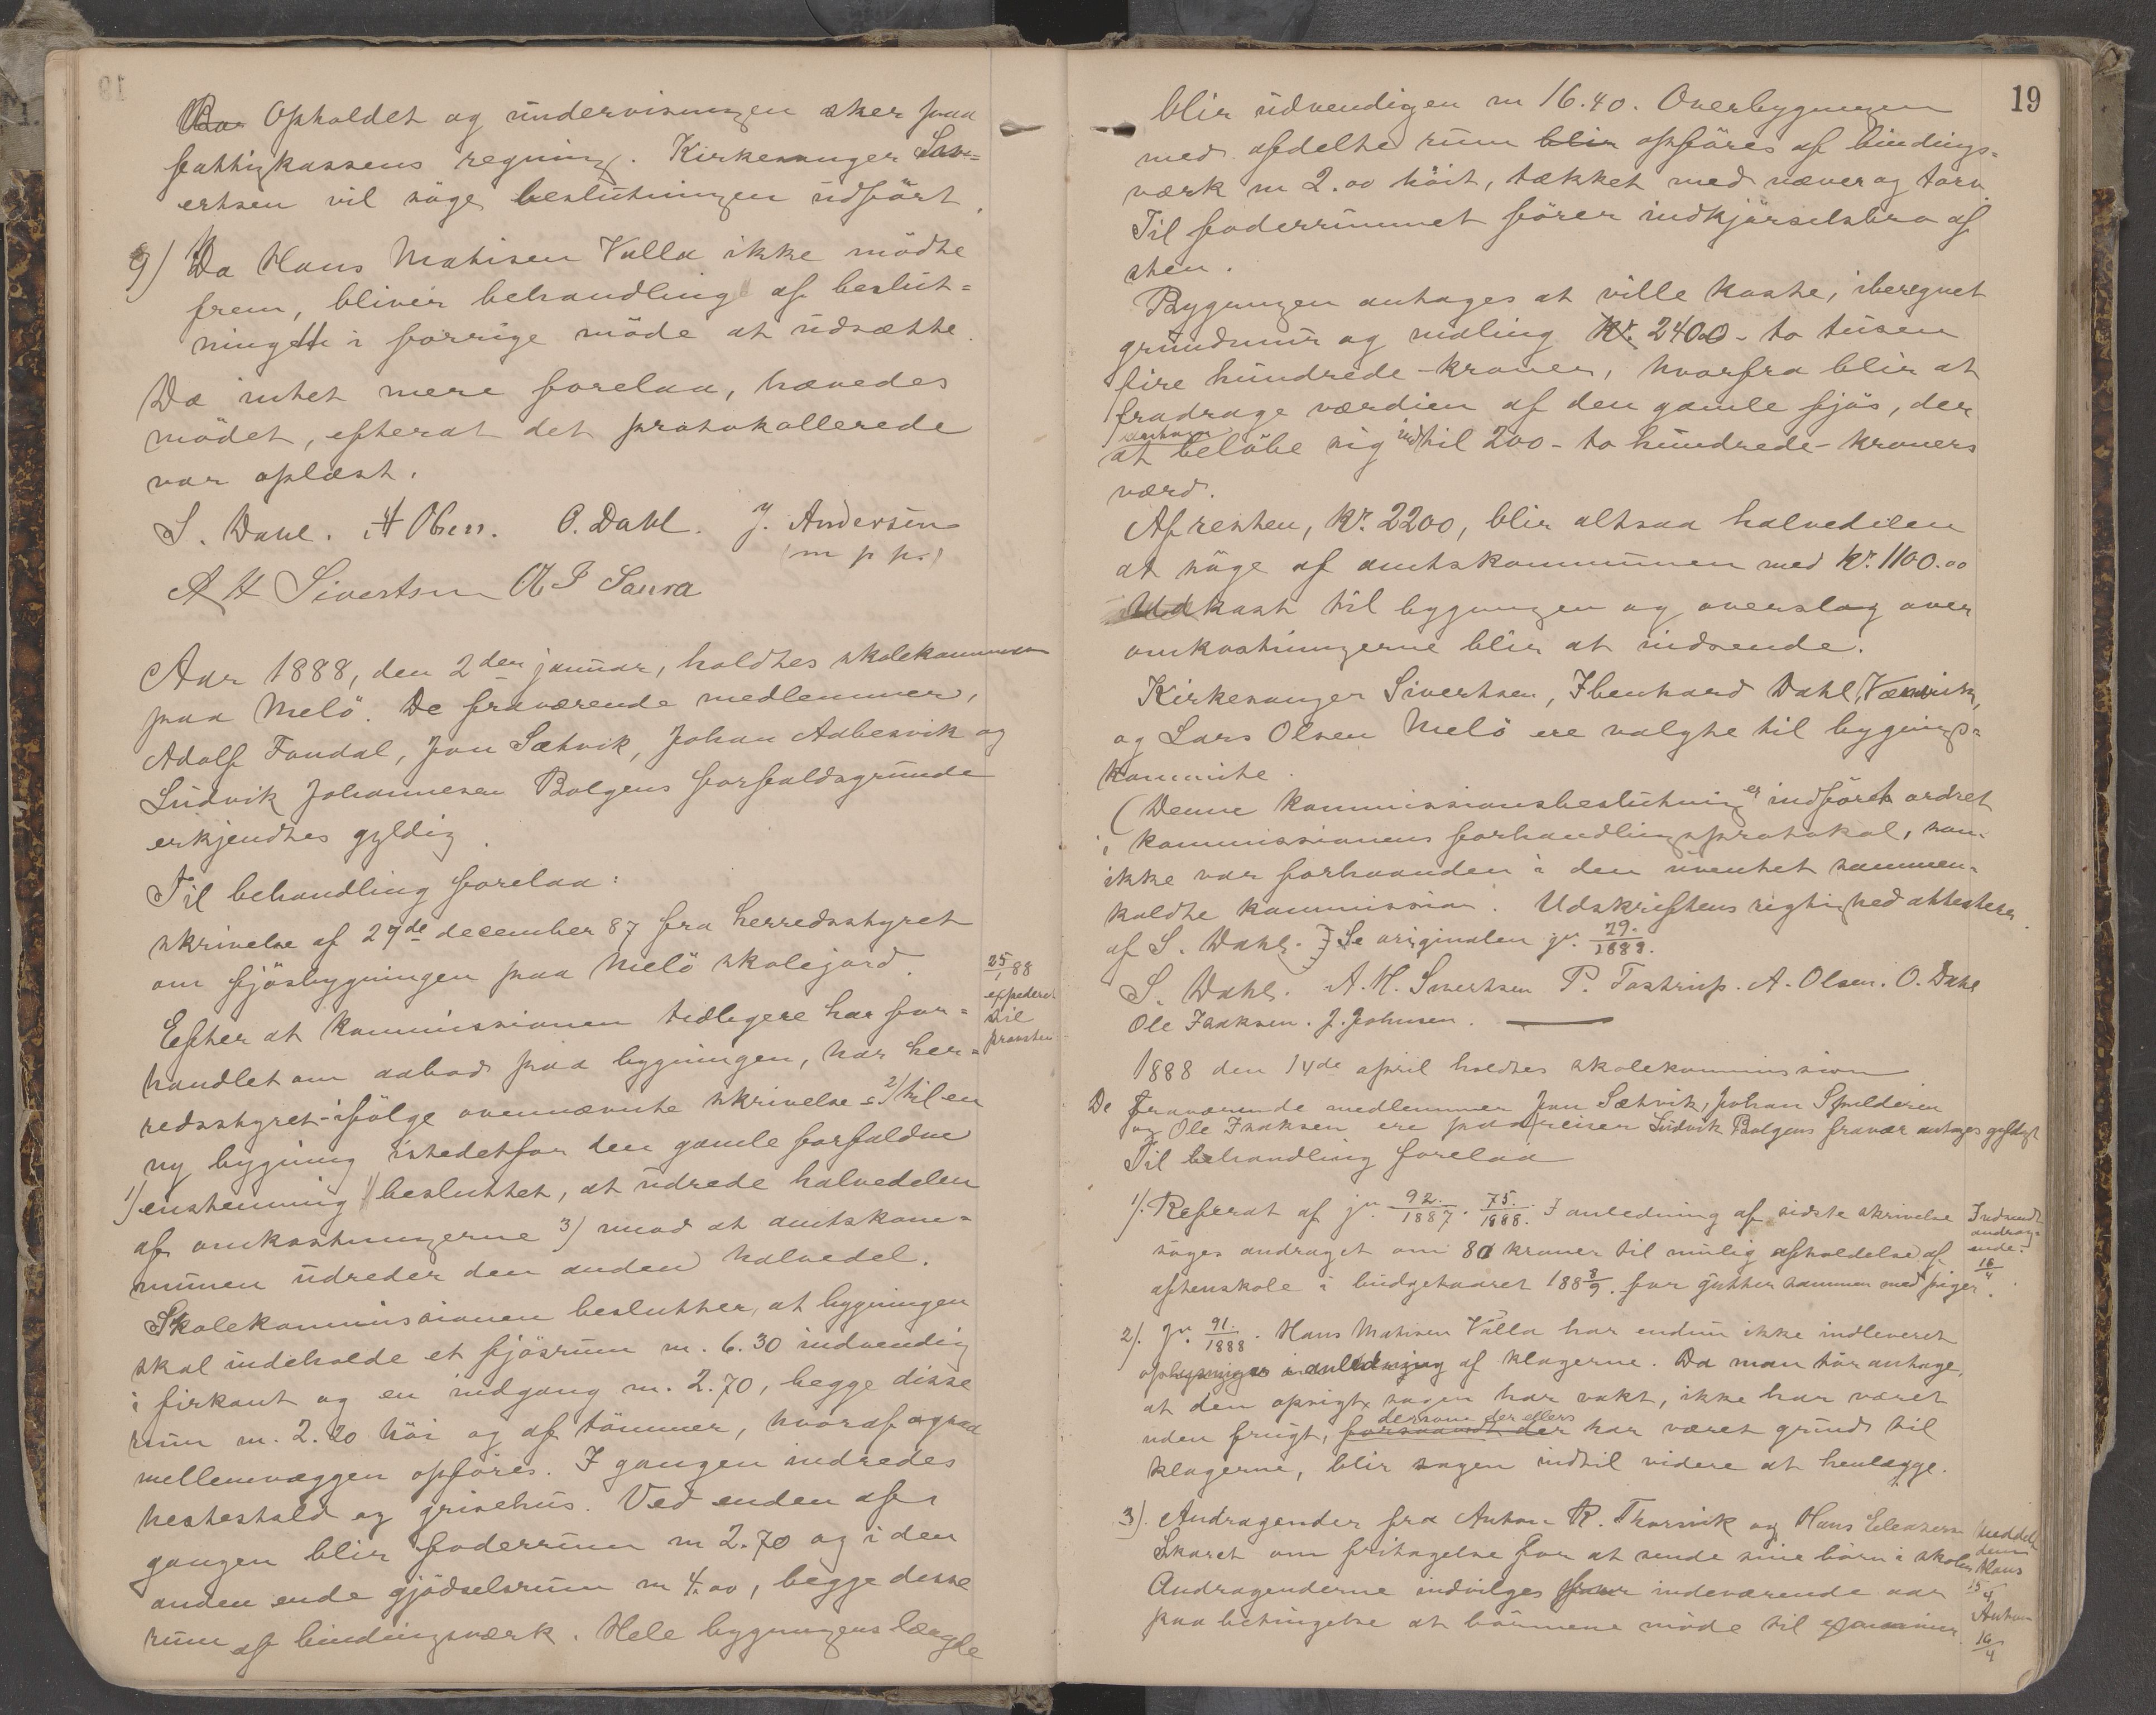 Opholdet og undervisningen sker paa
fattigkassens regning. Kirkesanger Siv-
ertsen vil söge beslutningen udfört.
9) Da Hans Matisen Valla ikke mödte
frem, bliver behandling af beslut-
ningen i forrige möde at udsætte.
Da intet mere forelaa, hævedes
mödet, efterat det protokollerede
var oplæst.
S. Dahl. A Olsen. O. Dahl. J. Andersen
(m p p.)
A H Sivertsen
Aar 1888, den 2den januar, holdtes skolekommission
paa Melö. De fraværende medlemmer,
Adolf Fondal, Jon Sætvik, Johan Aabesvik og
Ludvik Johannesen Bolgens forfaldsgrunde
erkjendtes gyldig.
Til behandling forelaa:
skrivelse af 29de december 87 fra herredsstyret
om fjösbygningen paa Melö skolejord.
25/1 88
expederet
til
provsten
Efter at kommissionen tidligere har for-
handlet om aabod paa bygningen, har her-
redsstyret ifölge ovennævnte skrivelse 2) til en
ny bygning istedetfor den gamle forfaldne
1) enstemmig besluttet, at udrede halvedelen
af omkostningerne 3) mod at amtskom-
munen udreder den anden halvedel.
Skolekommissionen beslutter, at bygningen
skal indeholde et fjösrum m. 6.30 indvendig
i firkant og en indgang m. 2.70, begge disse
rum m. 2.20 höi og af tömmer, hvoraf ogsaa
mellemvæggen opföres. I gangen indredes
hestestald og grisehus. Ved enden af
gangen blir foderrum m 2.70 og i den
anden ende gjödselsrum m 4.00, begge disse
rum af bindingsværk. Hele bygningens længde
19
blir udvendigen m 16.40. Overbygningen
med afdelte rum blir opföres af bindings-
værk m 2.00 höit, tækket med næver og torv
Til foderrummet förer indkjörselsbro af
sten.
Bygningen antages at ville koste, iberegnet
grundmur og maling Kr. 2400 - to tusen
fire hundrede - kroner, hvorfra blir at
fradrage værdien af den gamle fjös, der
antages
at belöbe sig indtil 200 - to hundrede - kroners
værd.
Af resten, Kr. 2200, blir altsaa halvedelen
at söge af amtskommunen med Kr. 1100.00
Udkast til bygningen og overslag over
omkostningerne blir at indsende.
Kirkesanger Sivertsen, Ibenhard Dahl,
og Lars Olsen Melö ere valgte til bygnings-
kommite.
(Denne kommissionsbeslutning er indfört ordret
i kommissionens forhandlingsprotokol, som
ikke var forhaanden i den uventet sammen-
kaldte kommission. Udskriftens rigtighed attesteres
af S. Dahl.) Se originalen jr. 29./1888.
S. Dahl. A. H. Sivertsen P. Tostrup. A. Olsen. O. Dahl
Ole Isaksen. J. Johnsen.
1888 den 14de april holdtes skolekommission
De fraværende medlemmer Jon Sætvik, Johan Spilderen
og Ole Isaksen ere paa reiser Ludvik Bolgens fravær antages gyldigt
Til behandling forelaa
1). Referat af jr. 92./1887. 75./1888. I anledning af sidste skrivelse
söges andraget om 80 kroner til mulig afholdelse af
aftenskole i budgetaaret 188 8/9. for gutter sammen med piger.
Indsendt
andrag-
ende.
16/4
2). Jr. 91./1888. Hans Matisen Valla har endnu ikke indleveret
oplysninger i anledning af klagerne. Da man tör antage,
at den opsigt sagen har vakt, ikke har været
dersom der ellers
uden frugt, forsaavidt der har været grund til
klagerne, blir sagen indtil videre at henlægge.
3). Andragender fra Anton R. Thorsvik og Hans Eleazersen
Skaret om fritagelse for at sende sine börn i skolen
Andragenderne indvilges for indeværende aar
paa betingelse at börnene möde til examina.
Meddelt
dem
Hans
15/4
Anton
16/4